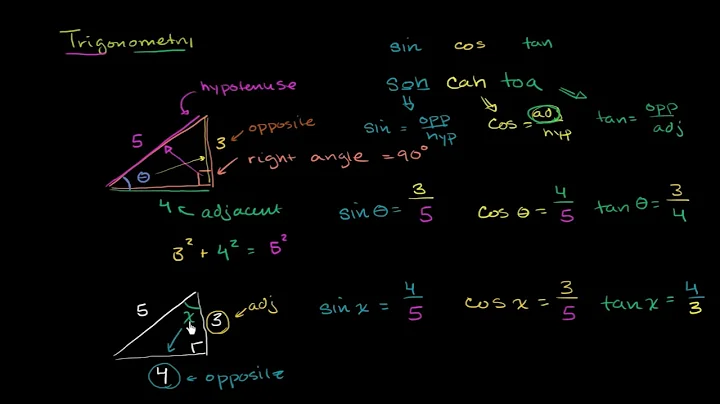 Trigonometry
sin cos tan
hypotenuse
Soh cah toa
sin = opp/hyp
cos = adj/hyp
tan = opp/adj
5 3 opposite
θ right angle = 90°
4 adjacent
sin θ = 3/5
cos θ = 4/5
tan θ = 3/4
3² + 4² = 5²
5 x 3 adj
sin x = 4/5
cos x = 3/5
tan x = 4/3
4 opposite